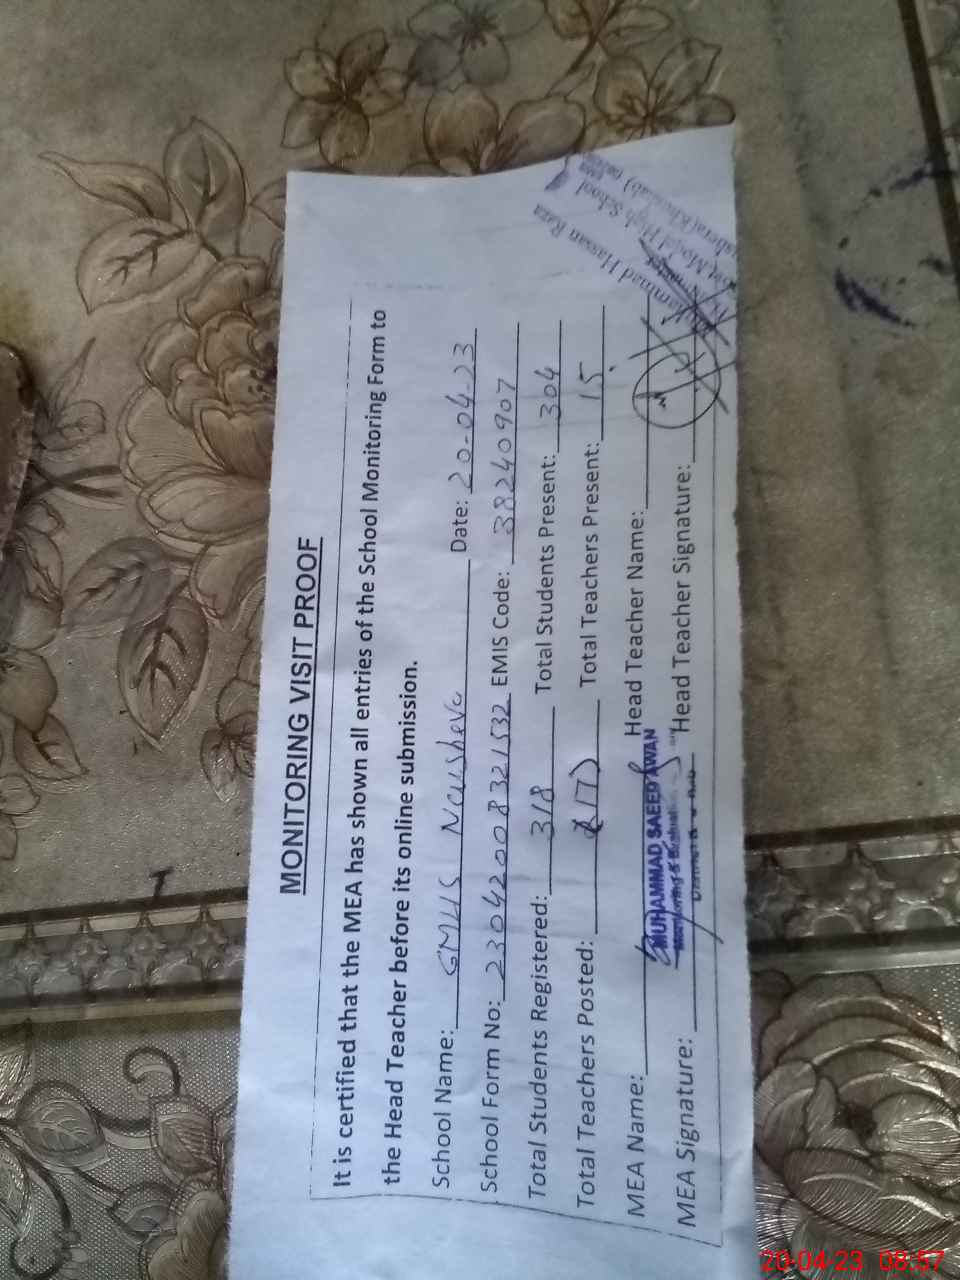 MONITORING VISIT PROOF
It is certified that the MEA has shown all entries of the School Monitoring Form to
the Head Teacher before its online submission.
School Name: GMHS Date: 20-04-23
School Form No: 230420083 21532 EMIS Code: 38240907
Total Students Registered: 318 Total Students Present: 304
Total Teachers Posted: 17 Total Teachers Present: 15
MEA Name: MUHAMMAD SAEED AWAN Head Teacher Name:
Monitoring &
MEA Signature: Head Teacher Signature:
Muhammad Hassan Raza
Model High School
20-04-23 08:57